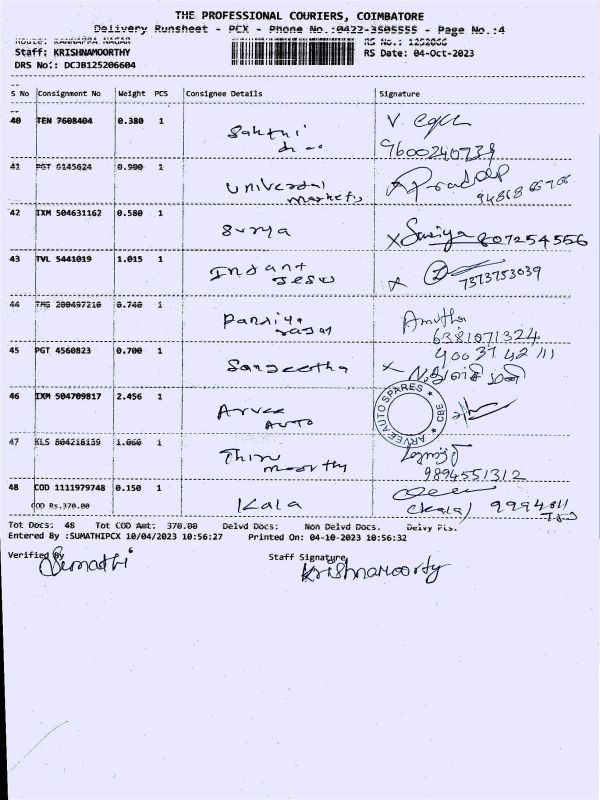 THE PROFESSIONAL COURIERS, COIMBATORE
Delivery Runsheet - PCX - Phone No.:0422-3505555 - Page No.:4
Route: KANNAPPA NAGAR RS No.: 1252066
Staff: KRISHNAMOORTHY RS Date: 04-Oct-2023
DRS No.: DCJB125206604
S No Consignment No Weight PCS Consignee Details Signature
40 TEN 7608404 0.380 1 Sakthi
9600240739
41 PGT 6145624 0.900 1 Universal markets Pradeep
42 IXM 504631162 0.580 1 Surya Suriya 807254556
43 TVL 5441019 1.015 1 Indant Jesu 7373753039
44 TMG 200497210 0.740 1 Pandiya rajan Amutha
6381071324
45 PGT 4560823 0.700 1 Sangeetha
46 IXM 504709817 2.456 1 Arvee AUTO ARVEE AUTO SPARES CBE
47 KLS 804216159 1.060 1 Thiru moorthy
9894551312
48 COD 1111979748 0.150 1 Kala (Kala)
COD Rs.370.00
Tot Docs: 48 Tot COD Amt: 370.00 Delvd Docs: Non Delvd Docs. Delvy Pts.
Entered By :SUMATHIPCX 10/04/2023 10:56:27 Printed On: 04-10-2023 10:56:32
Verified By Staff Signature
Sumathi Krishnamoorthy